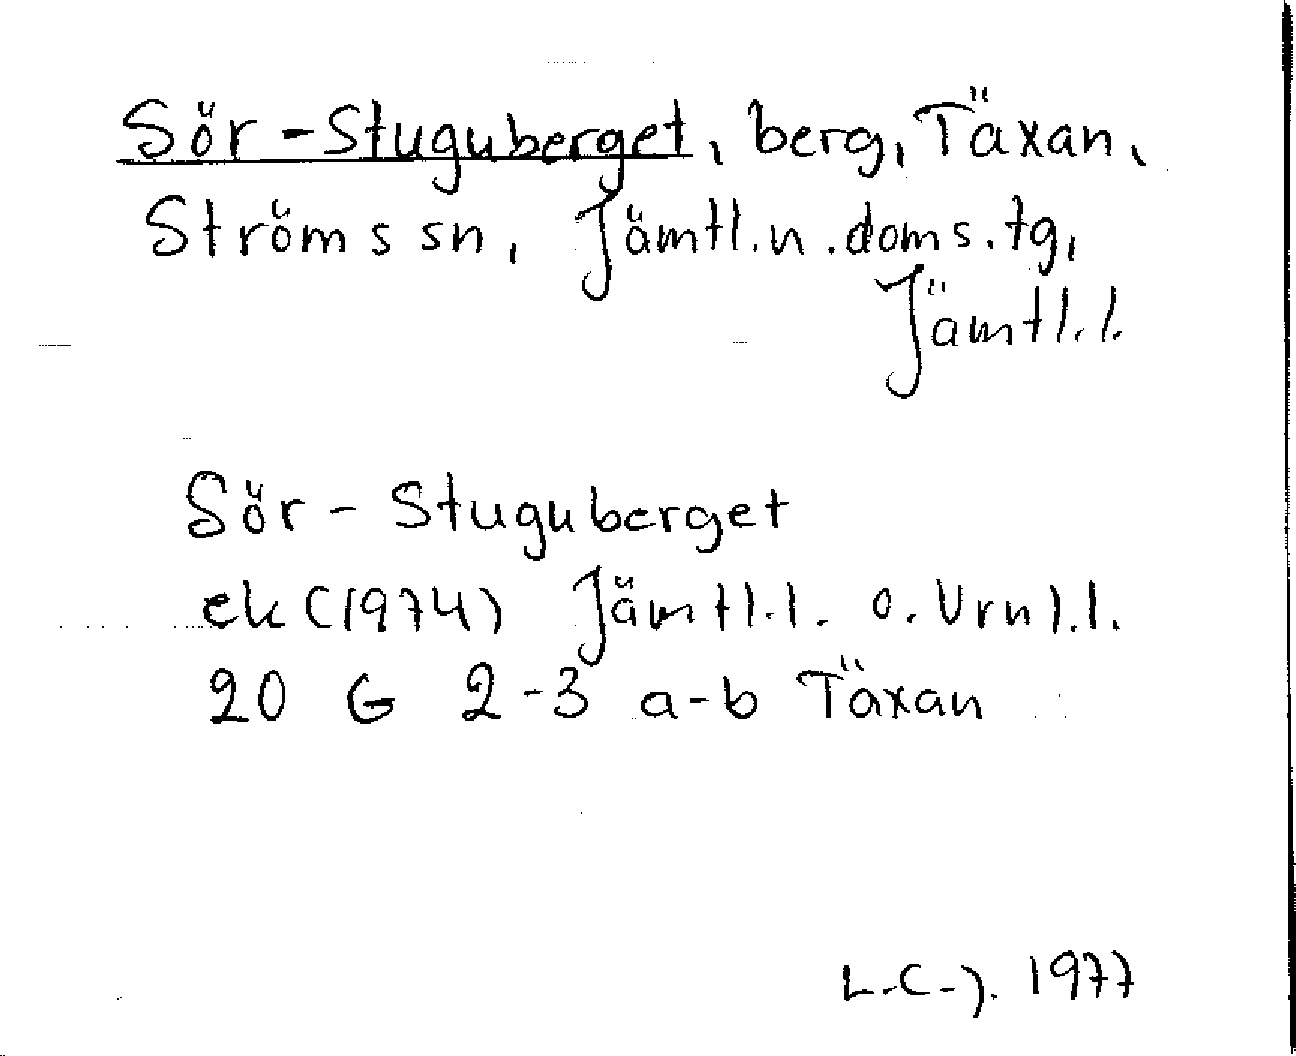 Sör-Stuguberget, berg, Täxan,
Ströms sn, Jämtl.n.doms.tg,
Jämtl.l.
Sör-Stuguberget
ek (1974) Jämtl.l. o. Vrnl.l.
20 G 2-3 a-b Täxan
L.C-J. 1977